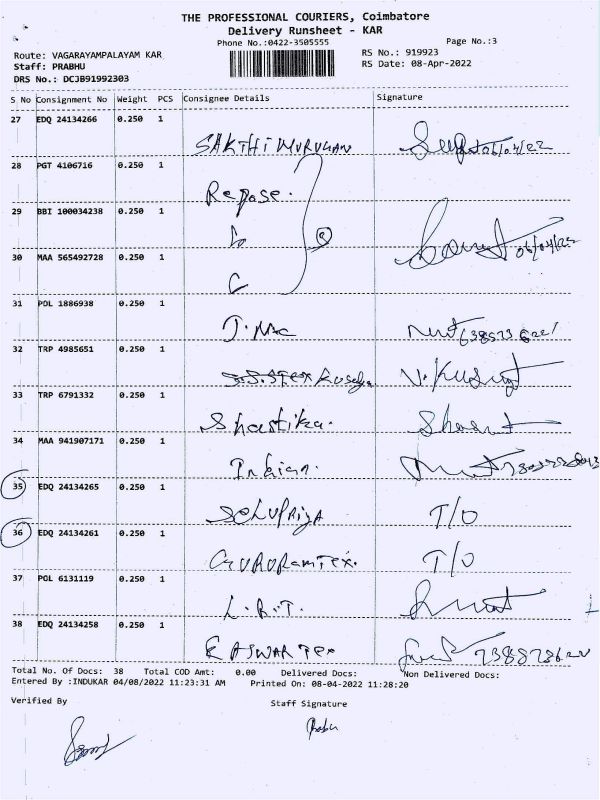 THE PROFESSIONAL COURIERS, Coimbatore
Delivery Runsheet - KAR
Phone No.:0422-3505555 Page No.:3
Route: VAGARAYAMPALAYAM KAR RS No.: 919923
Staff: PRABHU RS Date: 08-Apr-2022
DRS No.: DCJB91992303
S No Consignment No Weight PCS Consignee Details Signature
27 EDQ 24134266 0.250 1
SAKTHI MURUGAN
28 PGT 4106716 0.250 1
Repose.
29 BBI 100034238 0.250 1
30 MAA 565492728 0.250 1
31 PDL 1886938 0.250 1
J. Mac
32 TRP 4985651 0.250 1
33 TRP 6791332 0.250 1
Shastika.
34 MAA 941907171 0.250 1
Indian.
35 EDQ 24134265 0.250 1
SELVPRIYA T/O
36 EDQ 24134261 0.250 1
GURURAMTEX. T/O
37 POL 6131119 0.250 1
L.R.T.
38 EDQ 24134258 0.250 1
EASWAR TEX
Total No. Of Docs: 38 Total COD Amt: 0.00 Delivered Docs: Non Delivered Docs:
Entered By :INDUKAR 04/08/2022 11:23:31 AM Printed On: 08-04-2022 11:28:20
Verified By Staff Signature
Prabu